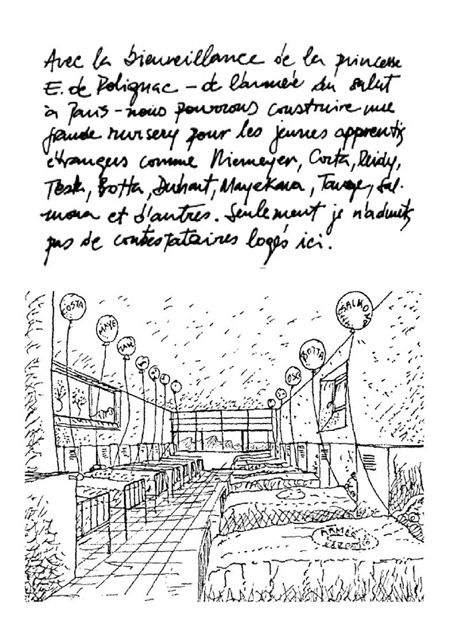 Avec la bienveillance de la princesse
E. de Polignac – de l'armée du salut
à Paris – nous pourrons construire une
grande nursery pour les jeunes apprentis
étrangers comme Niemeyer, Costa, Reidy,
Testa, Botta, Duhart, Mayekawa, Tange, Sal-
mona et d'autres. Seulement je n'admets
pas de contestataires logés ici.
COSTA
MAYE
TAN
BOTTA
SALMONA
ARMÉE